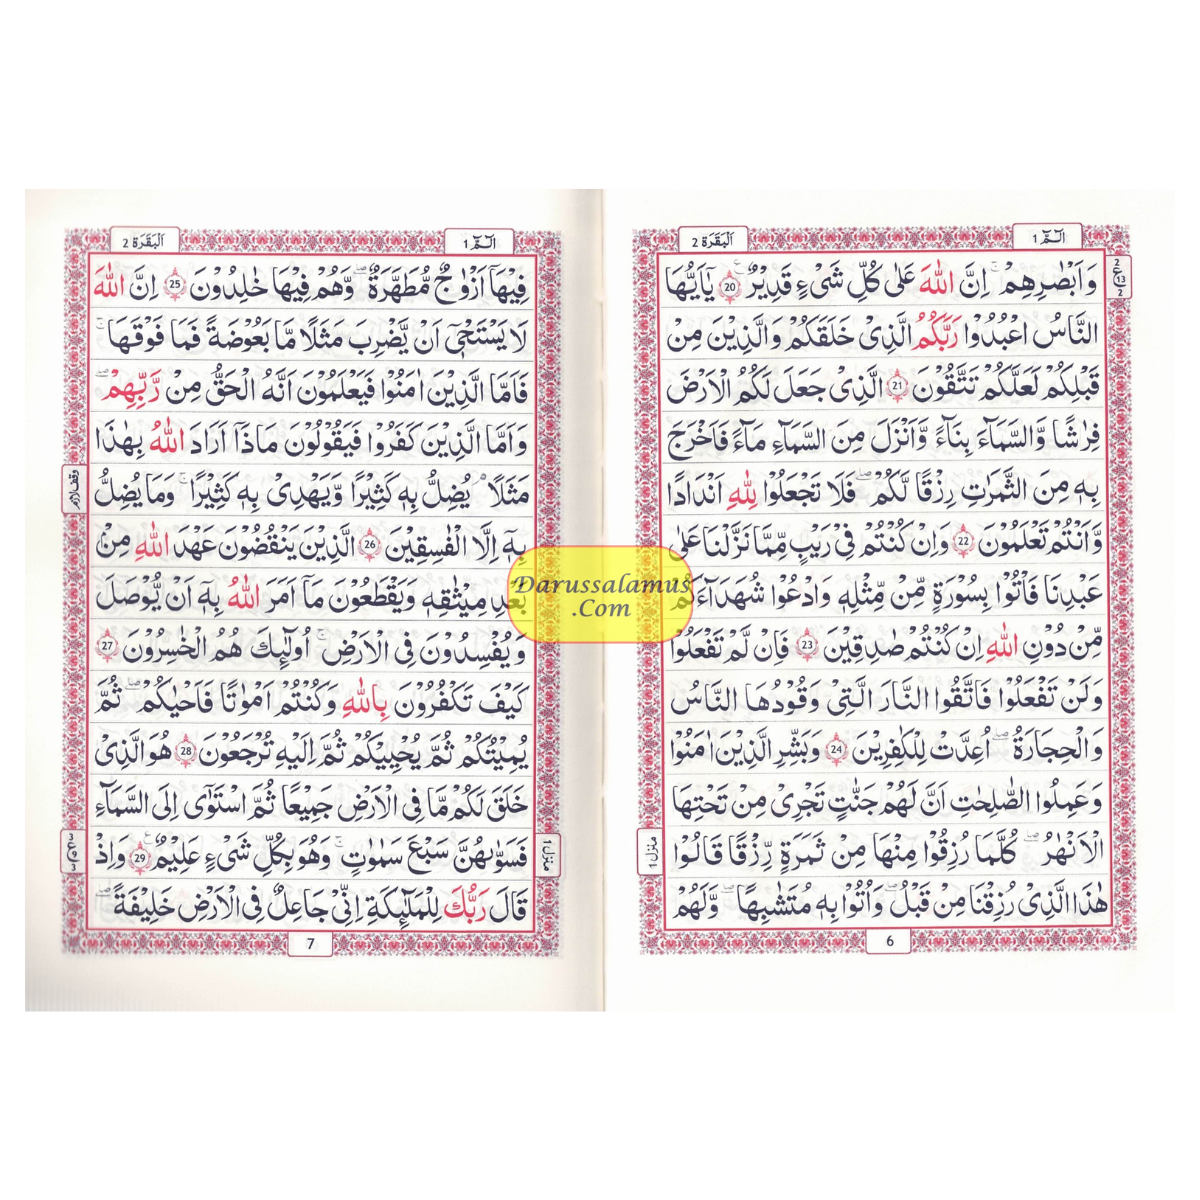 الٓمّٓ 1
اَلْبَقَرَة 2
وَاَبْصَارِهِمْ ؕ اِنَّ اللّٰهَ عَلٰى كُلِّ شَىْءٍ قَدِيْرٌ 20 يٰۤاَيُّهَا
النَّاسُ اعْبُدُوْا رَبَّكُمُ الَّذِىْ خَلَقَكُمْ وَالَّذِيْنَ مِنْ
قَبْلِكُمْ لَعَلَّكُمْ تَتَّقُوْنَ 21 الَّذِىْ جَعَلَ لَكُمُ الْاَرْضَ
فِرٰشًا وَّالسَّمَآءَ بِنَآءً وَّاَنْزَلَ مِنَ السَّمَآءِ مَآءً فَاَخْرَجَ
بِهٖ مِنَ الثَّمَرٰتِ رِزْقًا لَّكُمْ ۖ فَلَا تَجْعَلُوْا لِلّٰهِ اَنْدَادًا
وَّاَنْتُمْ تَعْلَمُوْنَ 22 وَاِنْ كُنْتُمْ فِىْ رَيْبٍ مِّمَّا نَزَّلْنَا عَلٰى
عَبْدِنَا فَاْتُوْا بِسُوْرَةٍ مِّنْ مِّثْلِهٖ وَادْعُوْا شُهَدَآءَكُمْ
مِّنْ دُوْنِ اللّٰهِ اِنْ كُنْتُمْ صٰدِقِيْنَ 23 فَاِنْ لَّمْ تَفْعَلُوْا
وَلَنْ تَفْعَلُوْا فَاتَّقُوا النَّارَ الَّتِىْ وَقُوْدُهَا النَّاسُ
وَالْحِجَارَةُ ۖ اُعِدَّتْ لِلْكٰفِرِيْنَ 24 وَبَشِّرِ الَّذِيْنَ اٰمَنُوْا
وَعَمِلُوا الصّٰلِحٰتِ اَنَّ لَهُمْ جَنّٰتٍ تَجْرِىْ مِنْ تَحْتِهَا
الْاَنْهٰرُ ۖ كُلَّمَا رُزِقُوْا مِنْهَا مِنْ ثَمَرَةٍ رِّزْقًا قَالُوْا
هٰذَا الَّذِىْ رُزِقْنَا مِنْ قَبْلُ وَاُتُوْا بِهٖ مُتَشٰبِهًا ۖ وَّلَهُمْ
منزل 1
6
الٓمّٓ 1
اَلْبَقَرَة 2
فِيْهَاۤ اَزْوٰجٌ مُّطَهَّرَةٌ ۖ وَّهُمْ فِيْهَا خٰلِدُوْنَ 25 اِنَّ اللّٰهَ
لَا يَسْتَحْىٖۤ اَنْ يَّضْرِبَ مَثَلًا مَّا بَعُوْضَةً فَمَا فَوْقَهَا ۚ
فَاَمَّا الَّذِيْنَ اٰمَنُوْا فَيَعْلَمُوْنَ اَنَّهُ الْحَقُّ مِنْ رَّبِّهِمْ ۖ
وَاَمَّا الَّذِيْنَ كَفَرُوْا فَيَقُوْلُوْنَ مَاذَاۤ اَرَادَ اللّٰهُ بِهٰذَا
مَثَلًا ۘ يُضِلُّ بِهٖ كَثِيْرًا وَّيَهْدِىْ بِهٖ كَثِيْرًا ۚ وَمَا يُضِلُّ
بِهٖۤ اِلَّا الْفٰسِقِيْنَ 26 الَّذِيْنَ يَنْقُضُوْنَ عَهْدَ اللّٰهِ مِنْۢ
بَعْدِ مِيْثٰقِهٖ وَيَقْطَعُوْنَ مَاۤ اَمَرَ اللّٰهُ بِهٖۤ اَنْ يُّوْصَلَ
وَيُفْسِدُوْنَ فِى الْاَرْضِ ۚ اُولٰٓئِكَ هُمُ الْخٰسِرُوْنَ 27
كَيْفَ تَكْفُرُوْنَ بِاللّٰهِ وَكُنْتُمْ اَمْوٰتًا فَاَحْيٰكُمْ ۖ ثُمَّ
يُمِيْتُكُمْ ثُمَّ يُحْيِيْكُمْ ثُمَّ اِلَيْهِ تُرْجَعُوْنَ 28 هُوَ الَّذِىْ
خَلَقَ لَكُمْ مَّا فِى الْاَرْضِ جَمِيْعًا ثُمَّ اسْتَوٰۤى اِلَى السَّمَآءِ
فَسَوّٰىهُنَّ سَبْعَ سَمٰوٰتٍ ۚ وَهُوَ بِكُلِّ شَىْءٍ عَلِيْمٌ 29 وَاِذْ
قَالَ رَبُّكَ لِلْمَلٰٓئِكَةِ اِنِّىْ جَاعِلٌ فِى الْاَرْضِ خَلِيْفَةً ۖ
وقف لازم
منزل 1
7
Darussalamus
.Com